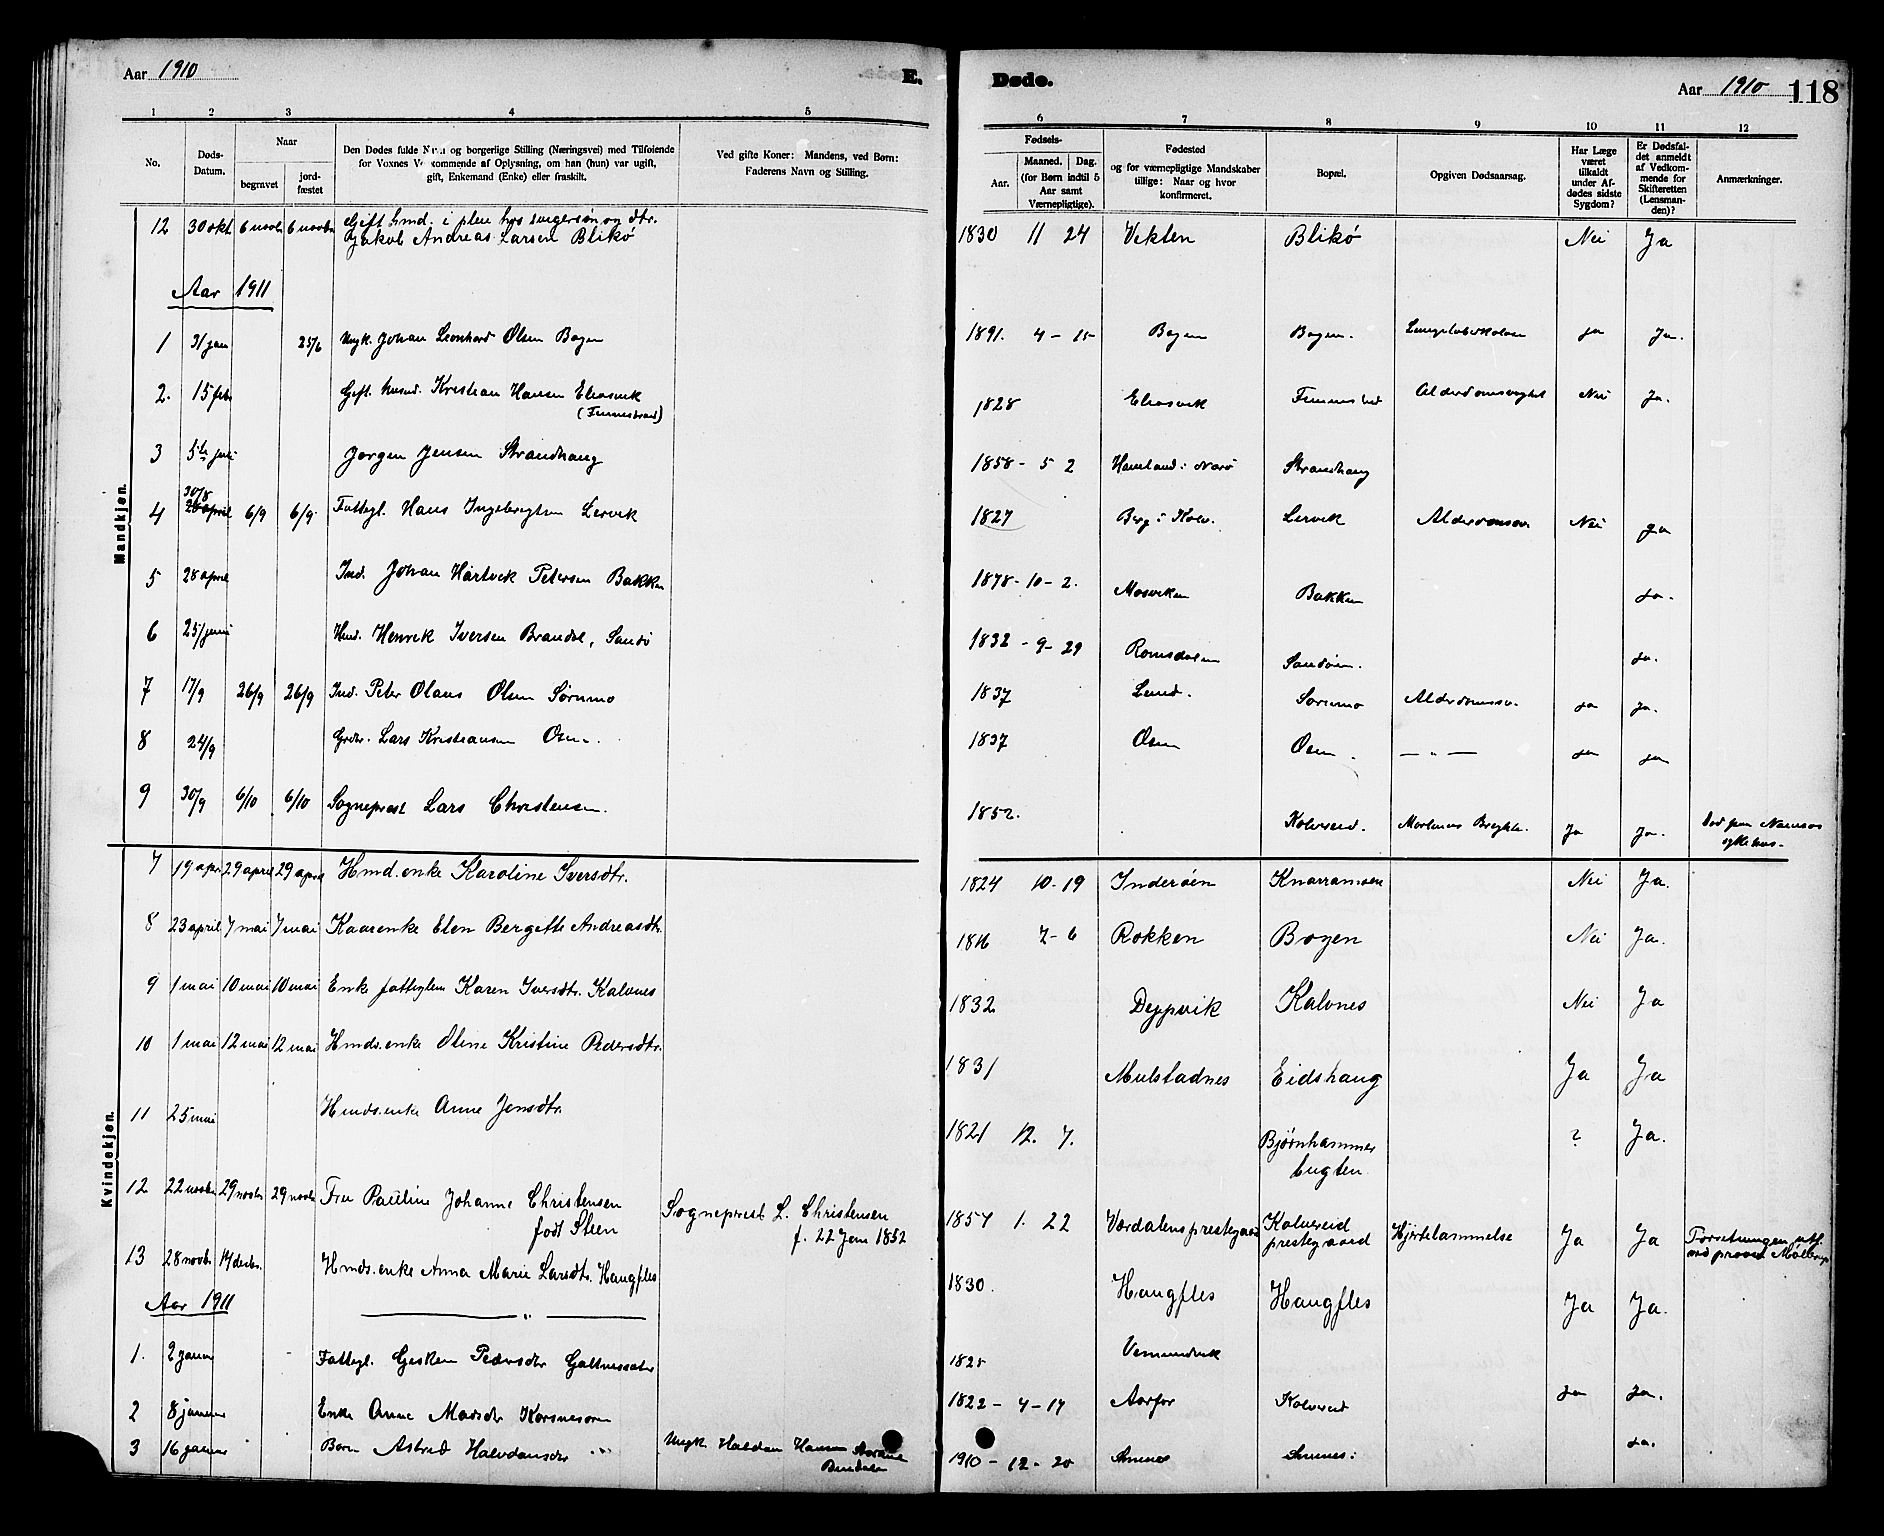 Aar 1910 E.
Døde. Aar 1910 118
1 2 3 4 5 6 7 8 9 10 11 12
No.
Døds-Datum.
Naar
begravet
jord-fæstet
Den Dødes fulde Navn og borgerlige Stilling (Næringsvei) med Tilføiende
for Voxnes Vedkommende af Oplysning, om han (hun) var ugift,
gift, Enkemand (Enke) eller fraskilt.
Ved gifte Koner: Mandens, ved Børn:
Faderens Navn og Stilling.
Fødsels-
Aar.
Maaned. Dag.
(for Børn indtil 5
Aar samt
Værnepligtige).
Fødested
og for værnepligtige Mandskaber
tillige: Naar og hvor
konfirmeret.
Bopæl.
Opgiven Dødsaarsag.
Har Læge
været
tilkaldt
under Af-
dødes sidste
Sygdom?
Er Dødsfal-
det anmeldt
af Vedkom-
mende for
Skifteretten
(Lensman-
den)?
Anmærkninger.
Mandkjøn.
12 30 okt 6 novbr 6 novbr Gift Gmd. i pleie hos svigersøn og dtr.
Jakob Andreas Larsen Blikø 1830 11 24 Vikten Blikø Nei Ja
Aar 1911
1 31 jan 25/6 Ungk. Johan Leonhard Olsen Bogen 1891. 4 - 15 Bogen Bogen. ja Ja.
2. 15 febr Gift. husmd. Kristian Hansen Eliasvik
(Finnestrand) 1828 Eliasvik Alderdomssvaghet Nei Ja.
3 5te juni Jørgen Jensen Strandhaug 1858 - 5 2 Strandhaug
4 30/8 26 april 6/9 6/9. Fattigl. Hans Ingebrigtsen Lervik 1827 Berg i Kolv. Lervik Alderdomssv. Nei Ja
5 28 april Ind. Johan Hartvik Petersen Bakken 1878 - 10 - 2. Mosviken Bakken Ja.
6 25/juni Henrik Iversen Brandal, Sandø 1832 - 9 - 29 Romsdalen Sandøen. Ja.
7 17/9 26/9 26/9 Ind. Peter Olaus Olsen Sørumo 1837 Lund. Sørumo Alderdomssv. Ja Ja.
8 24/9 Lars Kristiansen Osen. 1837 Osen Osen. — „ — Ja Ja
9 30/9 6/10 6/10 Sogneprest Lars Christensen. 1852. Kolvereid. Ja Ja. Død paa Namsos
sykehus.
Kvindekjøn.
7 19 apr 29 april 29 april Hmd.enke Karoline Iversdtr. 1824 10 - 19 Inderøen Knarramoen Nei Ja.
8 23 april 7 mai 7 mai Kaarenke Elen Bergitte Andreasdtr. 1816 7 - 6 Rokken Bogen Nei Ja.
9 1 mai 10 mai 10 mai Enke fattiglem Karen Iversdtr. Kalvnes 1832 Dypvik Kalvnes Nei Ja
10 1 mai 12 mai 12 mai Hmds.enke Oline Kristine Pedersdtr. 1831 Mulstadnes Eidshaug Ja Ja
11 25 mai Hmds.enke Anne Jensdtr. 1821 12. 7. Bjørnhammer
bugten. ? Ja.
12 22 novbr 29 novbr 29 novbr Fru Pauline Johanne Christensen
født Steen Sogneprest L. Christensen
f. 22 Jan 1852 1857 1. 22 Værdalens prestegaard Kolvereid
prestegaard Hjertelammelse Ja Ja Forretningen utf.
ved provst Møllerup
13 28 novbr 14 decbr. Hmds.enke Anna Marie Larsdtr. Haugfles 1830. Haugfles Haugfles Ja Ja.
Aar 1911 — „ —
1. 2 januar Fattigl. Gesken Pedersdtr 1825 Vemundvik
2 8 januar Enke Anne Madsdtr Korsnesøren 1822 - 4 - 14 Aarfor Kolvereid Ja Ja.
3 16 januar Barn Astrid Halvdansdtr „ Ungk Haldan Hansen
Bindalen 1910 - 12 - 20 Ja.